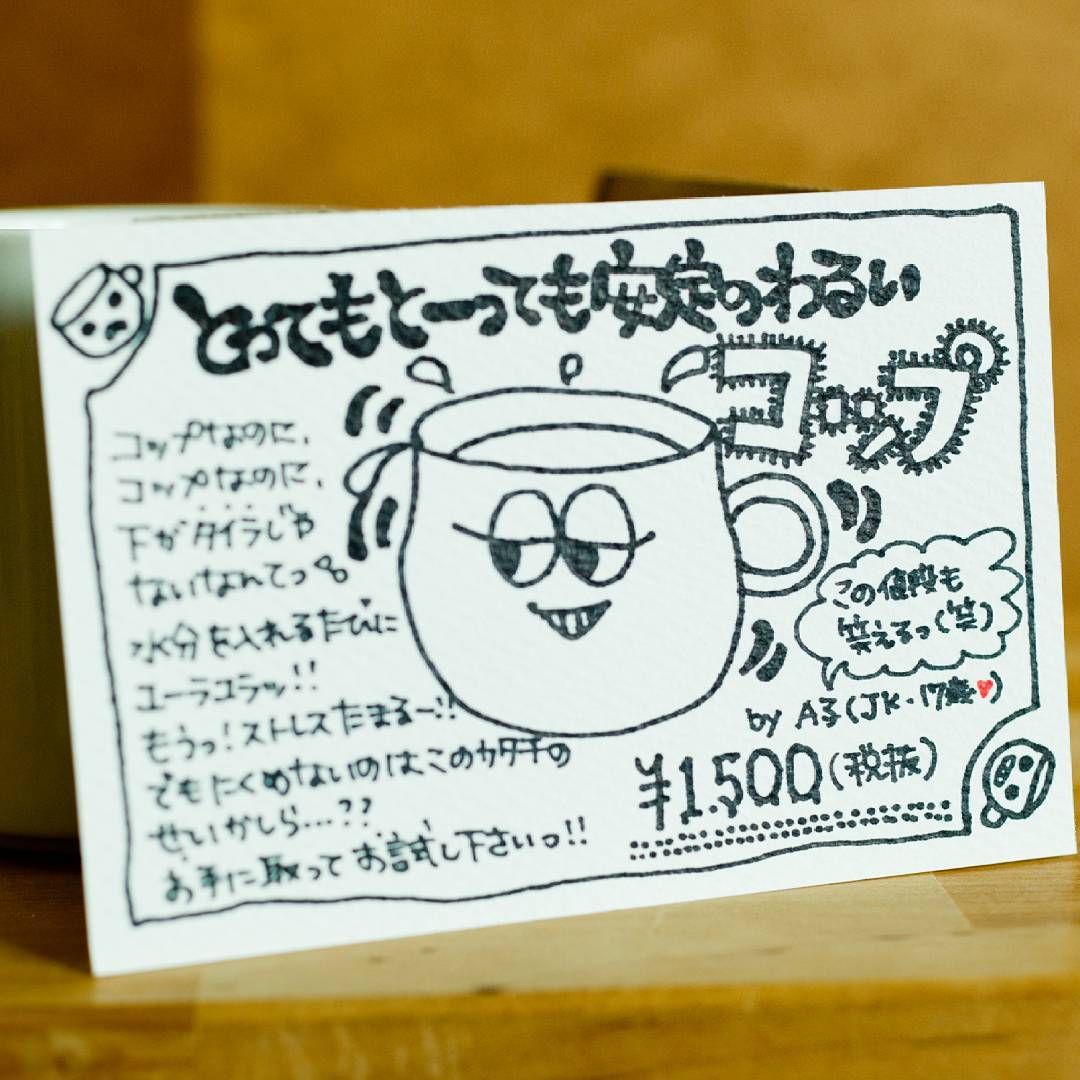 とってもとーっても安定のわるい
コップ
コップなのに、
コップなのに、
下がタイラじゃ
ないなんてっ。
水分を入れるたびに
ユーラユラッ!!
もうっ!ストレスたまるー!!
でもにくめないのはこのカタチの
せいかしら…??
お手に取ってお試し下さいっ!!
この値段も
笑えるっ(笑)
by A子(JK・17歳♥)
¥1.500(税抜)